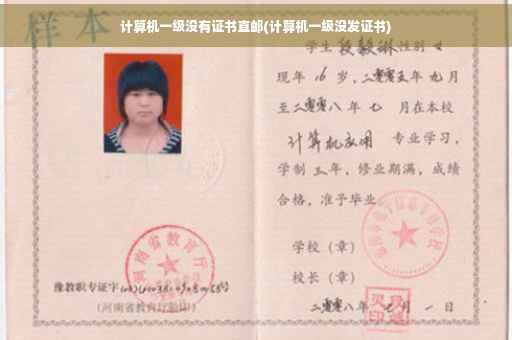 计算机一级没有证书直邮(计算机一级没发证书)
样本
学生 段毅琳 性别 女
现年 16 岁，二零零五年 九 月
至二零零八年 七 月在本校
计算机应用 专业学习，
学制 三 年，修业期满，成绩
合格，准予毕业。
学校（章）
校长（章）
二零零八年 七 月 一 日
河南省教育厅
豫教职专证字
(河南省教育厅验印)